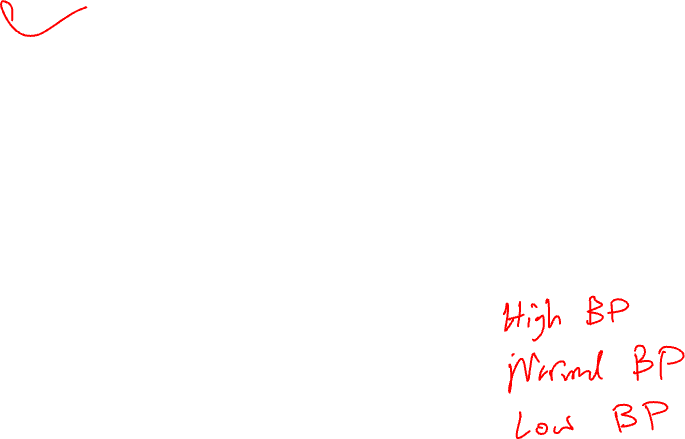 High BP
Normal BP
Low BP